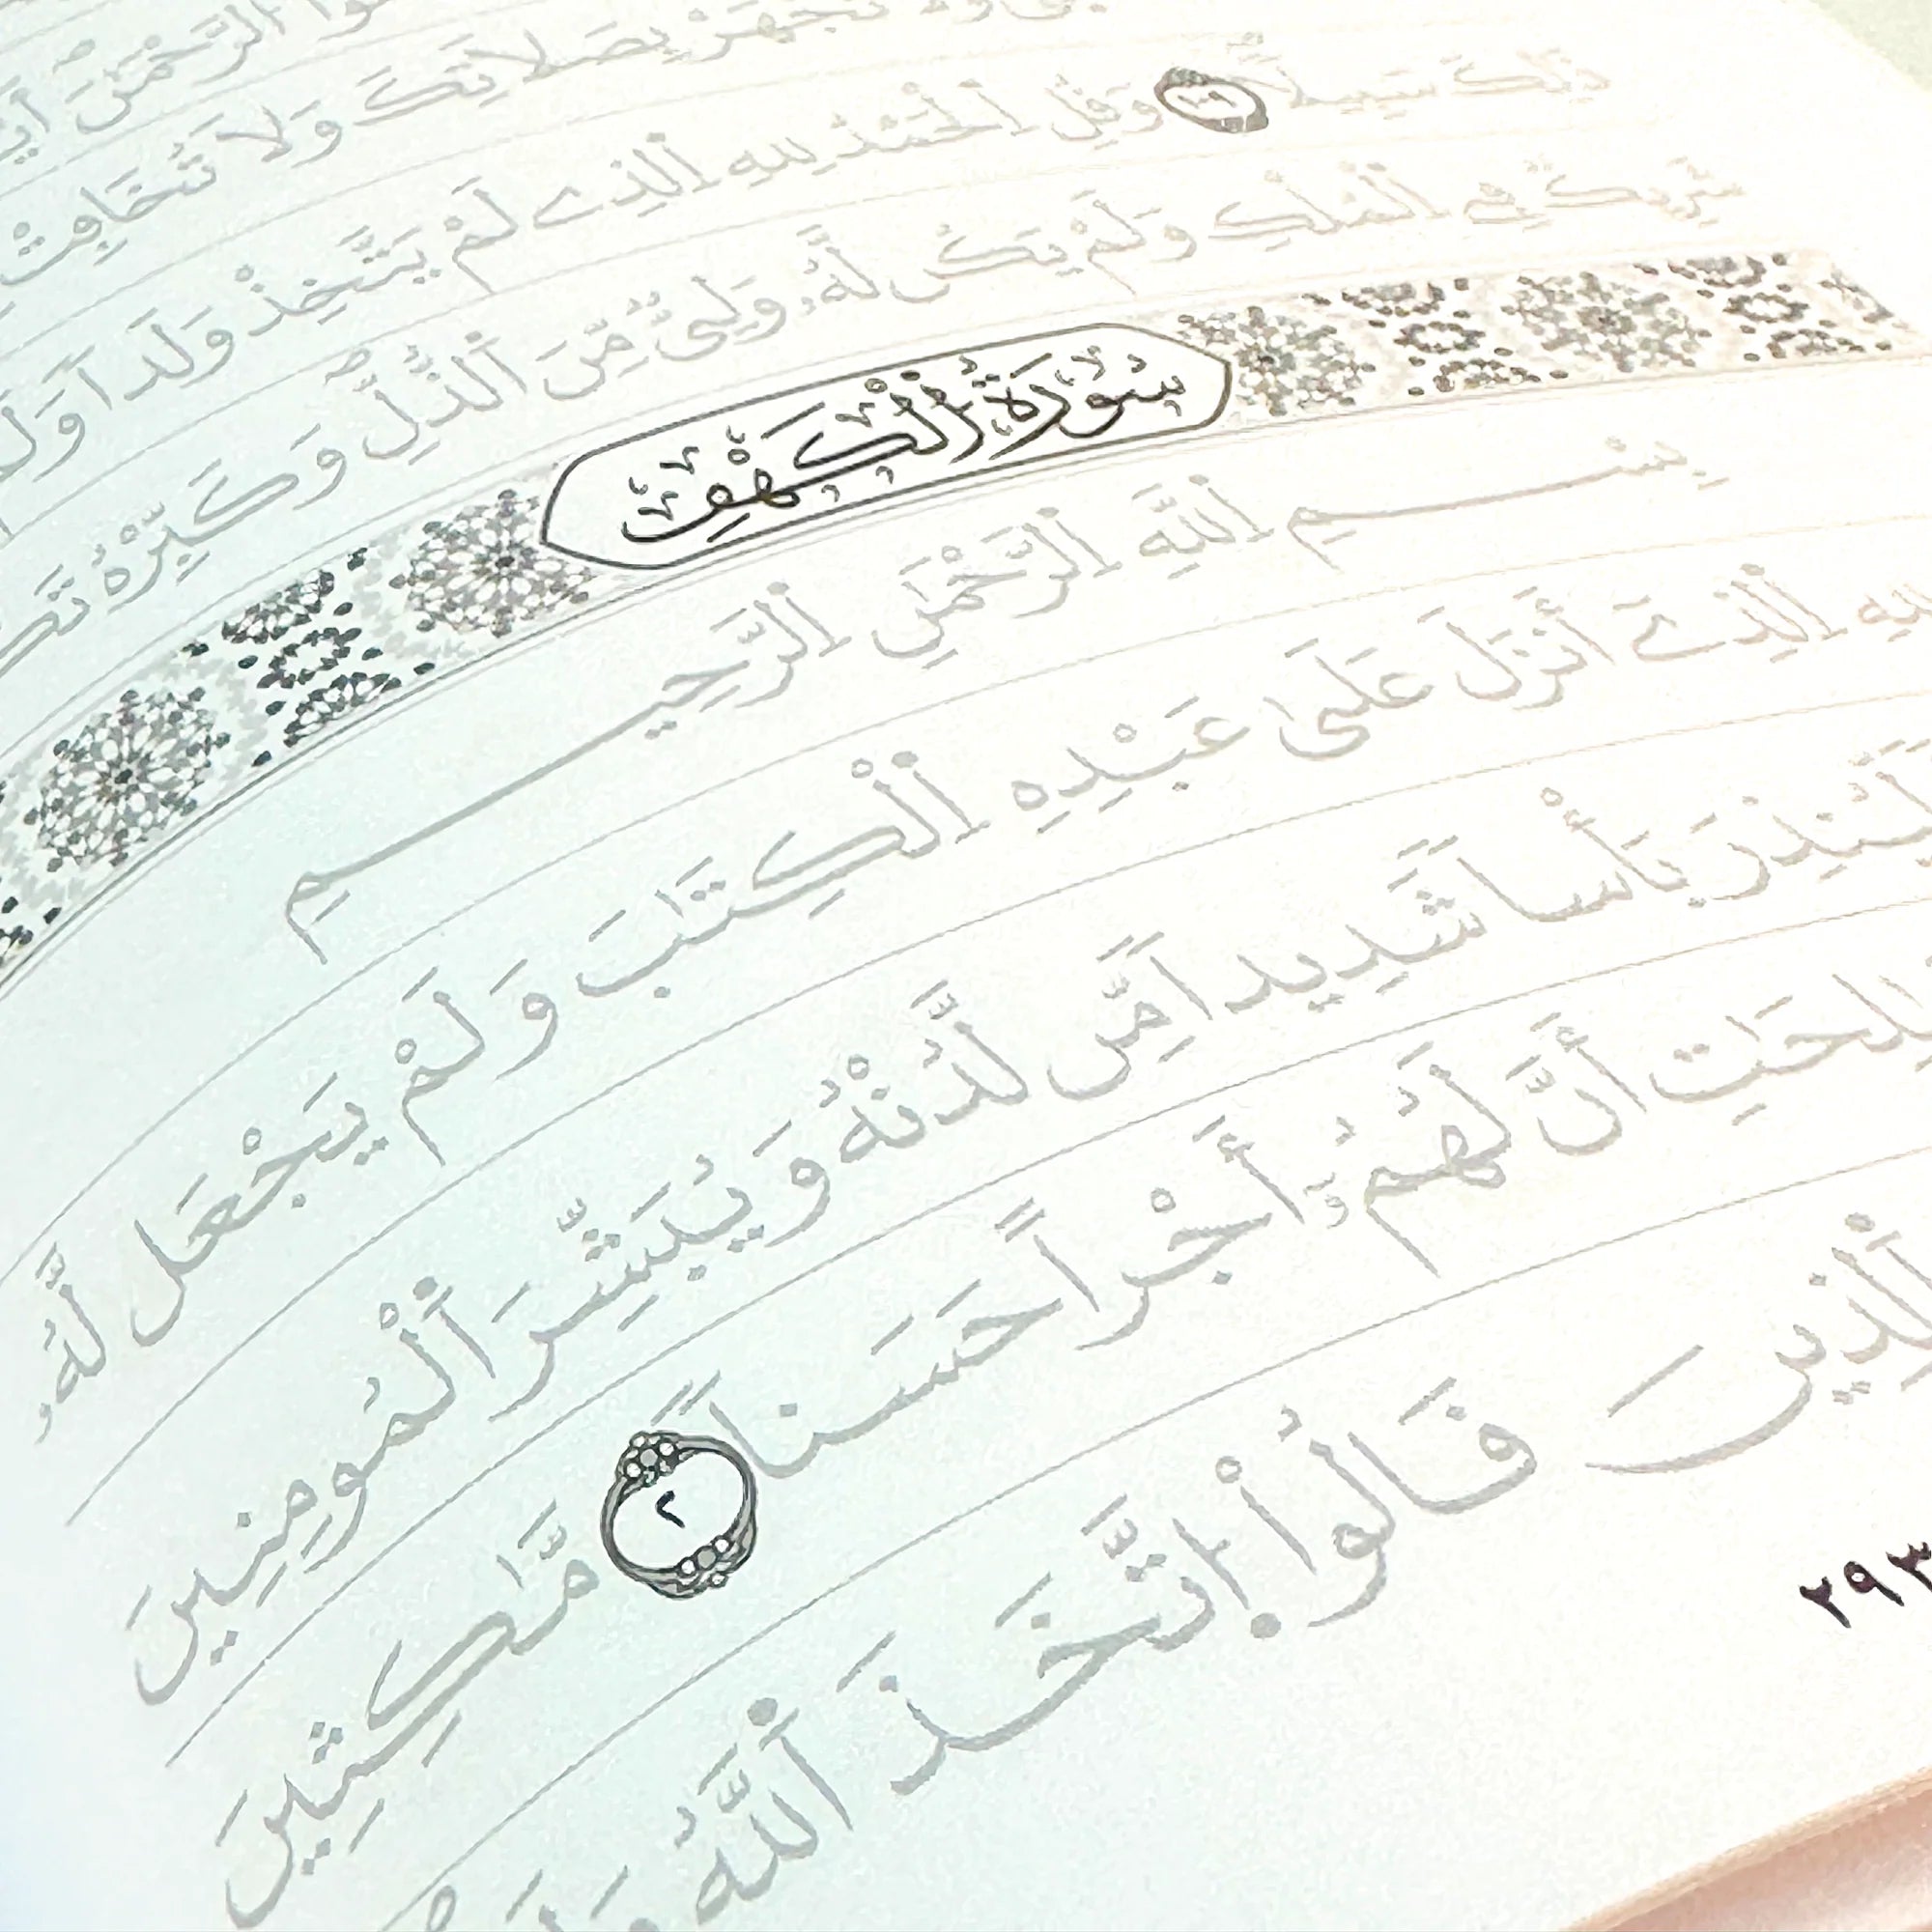 الرَّحْمَٰنَ
تَجْهَرْ بِصَلَاتِكَ وَلَا تُخَافِتْ
ذَٰلِكَ سَبِيلًا ١٠٩ وَقُلِ اِ۬لْحَمْدُ لِلهِ اِ۬لذِے لَمْ يَتَّخِذْ وَلَداً وَلَمْ
شَرِيكٞ فِے اِ۬لْمُلْكِ وَلَمْ يَكُن لَّهُۥ وَلِيّٞ مِّنَ اَ۬لذُّلِّ وَكَبِّرْهُ
سُورَةُ الْكَهْفِ
بِسْمِ اِ۬للَّهِ اِ۬لرَّحْمَٰنِ اِ۬لرَّحِيمِ
اِ۬لذِےٓ أَنزَلَ عَلَىٰ عَبْدِهِ اِ۬لْكِتَٰبَ وَلَمْ يَجْعَل لَّهُۥ
لِّيُنذِرَ بَأْساٗ شَدِيداٗ مِّن لَّدُنْهُ وَيُبَشِّرَ اَ۬لْمُومِنِينَ
أَنَّ لَهُمُۥٓ أَجْراً حَسَناٗ ٢ مَّٰكِثِينَ
اَ۬لذِينَ قَالُواْ اُ۪تَّخَذَ اَ۬للَّهُ
٢٩٣